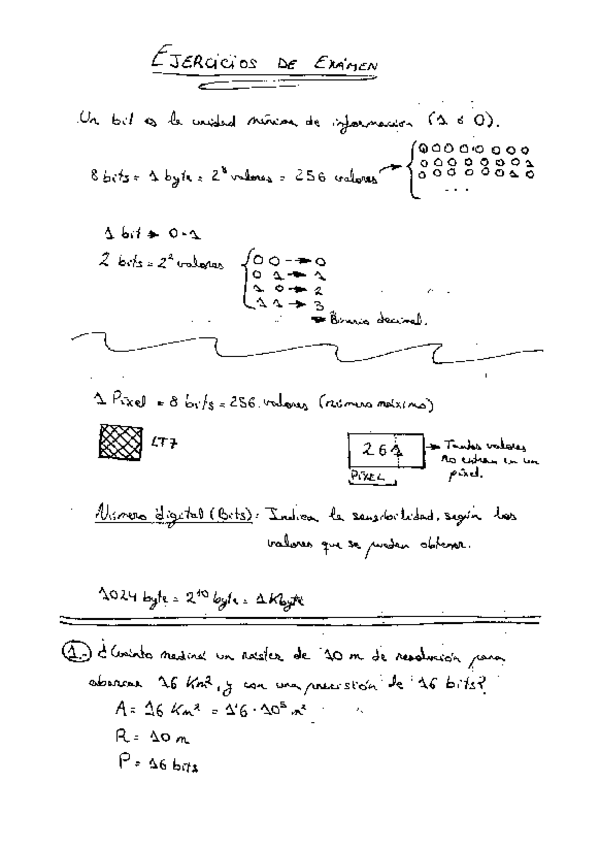 EJERCICIOS DE EXÁMEN
Un bit es la unidad mínima de información (1 ó 0).
8 bits = 1 byte = 2⁸ valores = 256 valores
0 0 0 0 0 0 0 0
0 0 0 0 0 0 0 1
0 0 0 0 0 0 1 0
...
1 bit → 0-1
2 bits = 2² valores
0 0 → 0
0 1 → 1
1 0 → 2
1 1 → 3
→ Binario decimal.
1 Pixel = 8 bits = 256 valores (número máximo)
LT7
261 → Tantos valores
no entran en un
pixel.
PIXEL
Número digital (Bits): Indica la sensibilidad, según los
valores que se puedan obtener.
1024 byte = 2¹⁰ byte = 1 Kbyte
1.- ¿Cuánto medirá un raster de 10 m de resolución para
abarcar 16 Km², y con una precisión de 16 bits?
A = 16 Km² = 1'6 · 10⁵ m²
R = 10 m
P = 16 bits